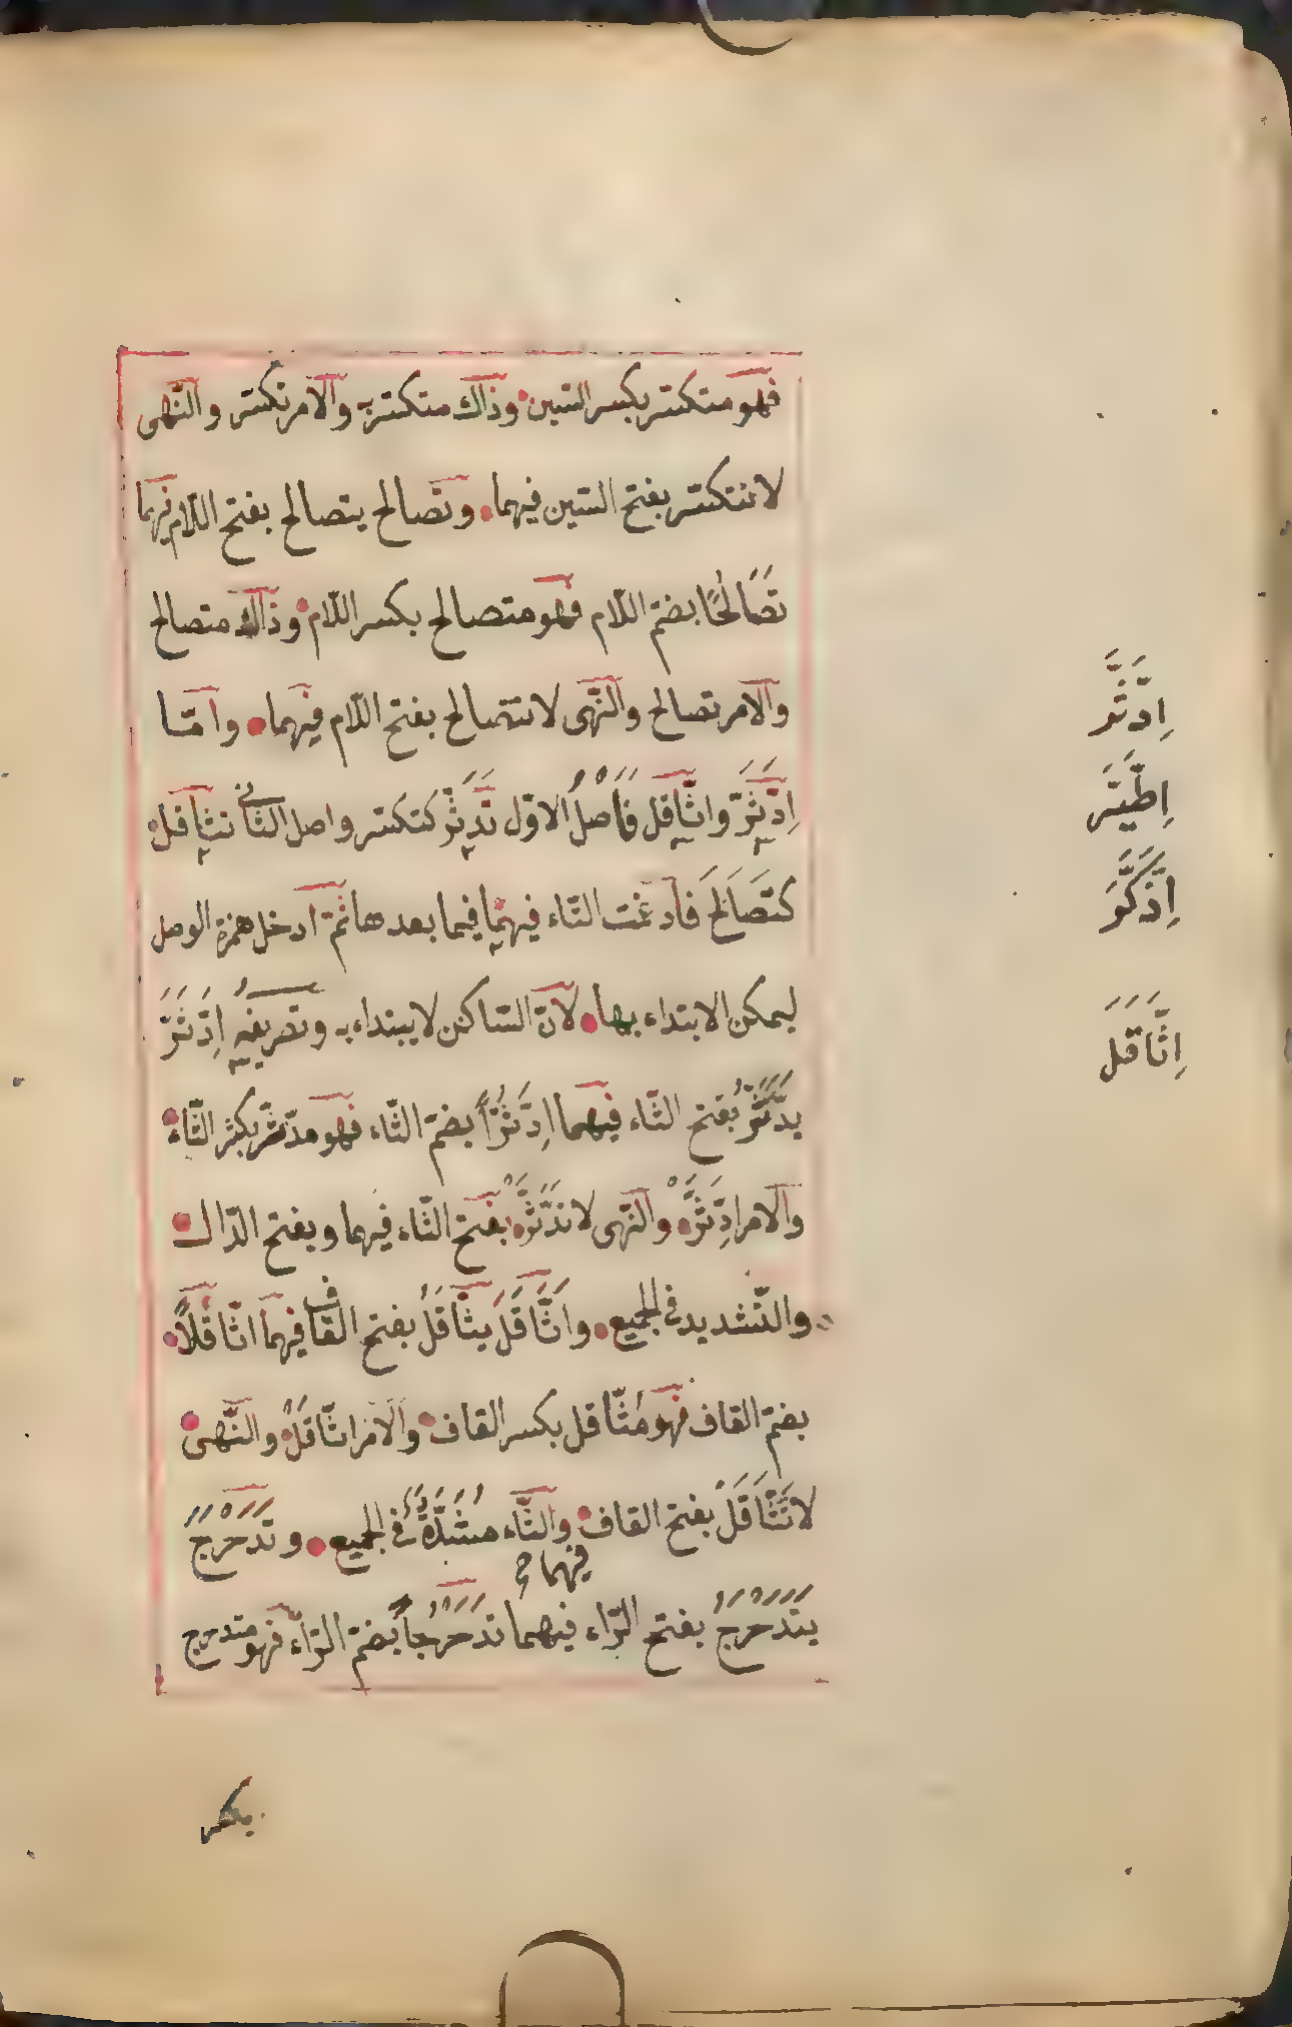 فهو متكسّر بكسر السّين وذاك متكسّر به والامر تكسّر والنّهى
لا تتكسّر بفتح السّين فيهما وتصالح يتصالح بفتح اللّام فيهما
تَصَالُحًا بضمّ اللّام فهو متصالح بكسر اللّام وذاك متصالح
والامر تصالح والنّهى لا تتصالح بفتح اللّام فيهما وامّا
اِدَّثَّرَ واثّاقل فَاَصْلُ الاوّل تَدَثَّرَ كتكسّر واصل الثّانى تثاقل
كتَصَالَحَ فادغمت التّاء فيهما فيما بعدها ثمّ ادخل همزة الوصل
ليمكن الابتداء بها لانّ السّاكن لا يبتداء به وتصريفه اِدَّثَّرَ
يدَّثَّرُ بفتح الثّاء فيهما اِدَّثُّرًا بضمّ الثّاء فهو مدّثّر بكسر الثّاء
والامر ادَّثَّرْ والنّهى لا تدَّثَّرْ بفتح الثّاء فيهما وبفتح الدّال
والتّشديد فى الجميع واثَّاقَلَ يثَّاقَلُ بفتح القاف فيهما اثّاقُلاً
بضمّ القاف فهو مُثّاقل بكسر القاف والامر اثّاقَلْ والنّهى
لا تَثَّاقَلْ بفتح القاف والثّاء مُشَدَّدَةٌ فى الجميع وتَدَحْرَجَ
فيهما صح
يَتَدَحْرَجُ بفتح الرّاء فيهما تَدَحْرُجاً بضمّ الرّاء فهو متدحرج
بكسر
اِدَّثَّرَ
اِطَّيَّرَ
اِذَّكَّرَ
اِثَّاقَلَ